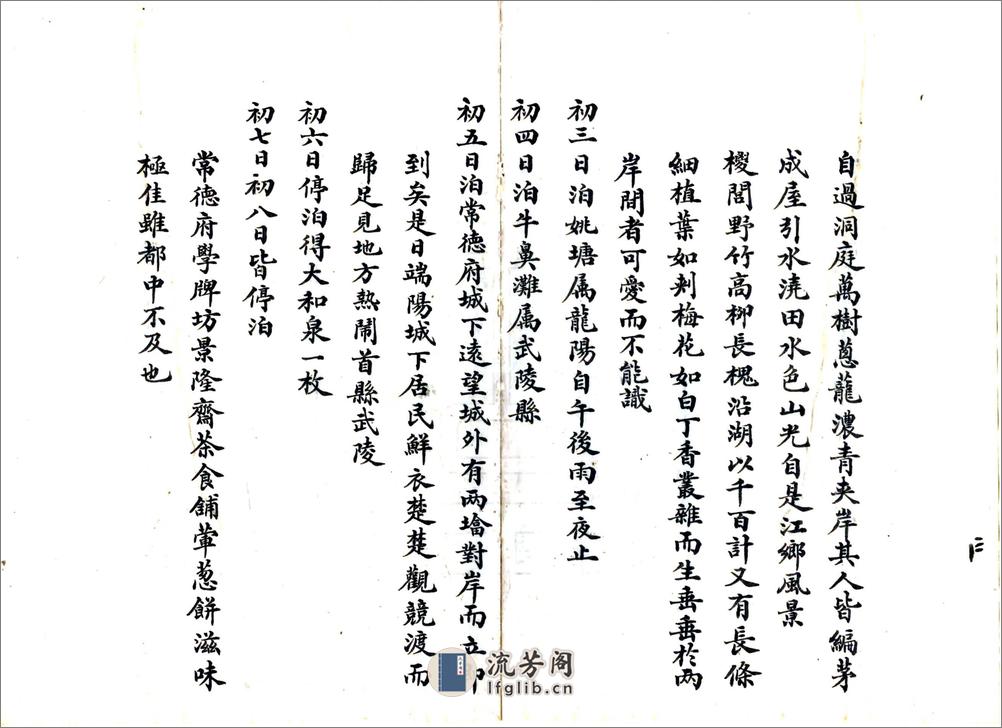 自過洞庭萬樹蔥蘢濃青夾岸其人皆編茅
成屋引水澆田水色山光自是江鄉風景
樱閭野竹高柳長槐沿湖以千百計又有長條
細植葉如刺梅花如白丁香叢雜而生垂垂於两
岸間者可愛而不能識
初三日泊姚塘属龍陽自午後雨至夜止
初四日泊牛鼻灘属武陵縣
初五日泊常徳府城下遠望城外有两墖對岸而立
到矣是日端陽城下居民鮮衣楚楚觀競渡而
歸足見地方熱鬧首縣武陵
初六日停泊得大和泉一枚
初七日初八日皆停泊
常徳府學牌坊景隆齋茶食舖葷葱餅滋味
極佳雖都中不及也
流芳阁
lfglib.cn